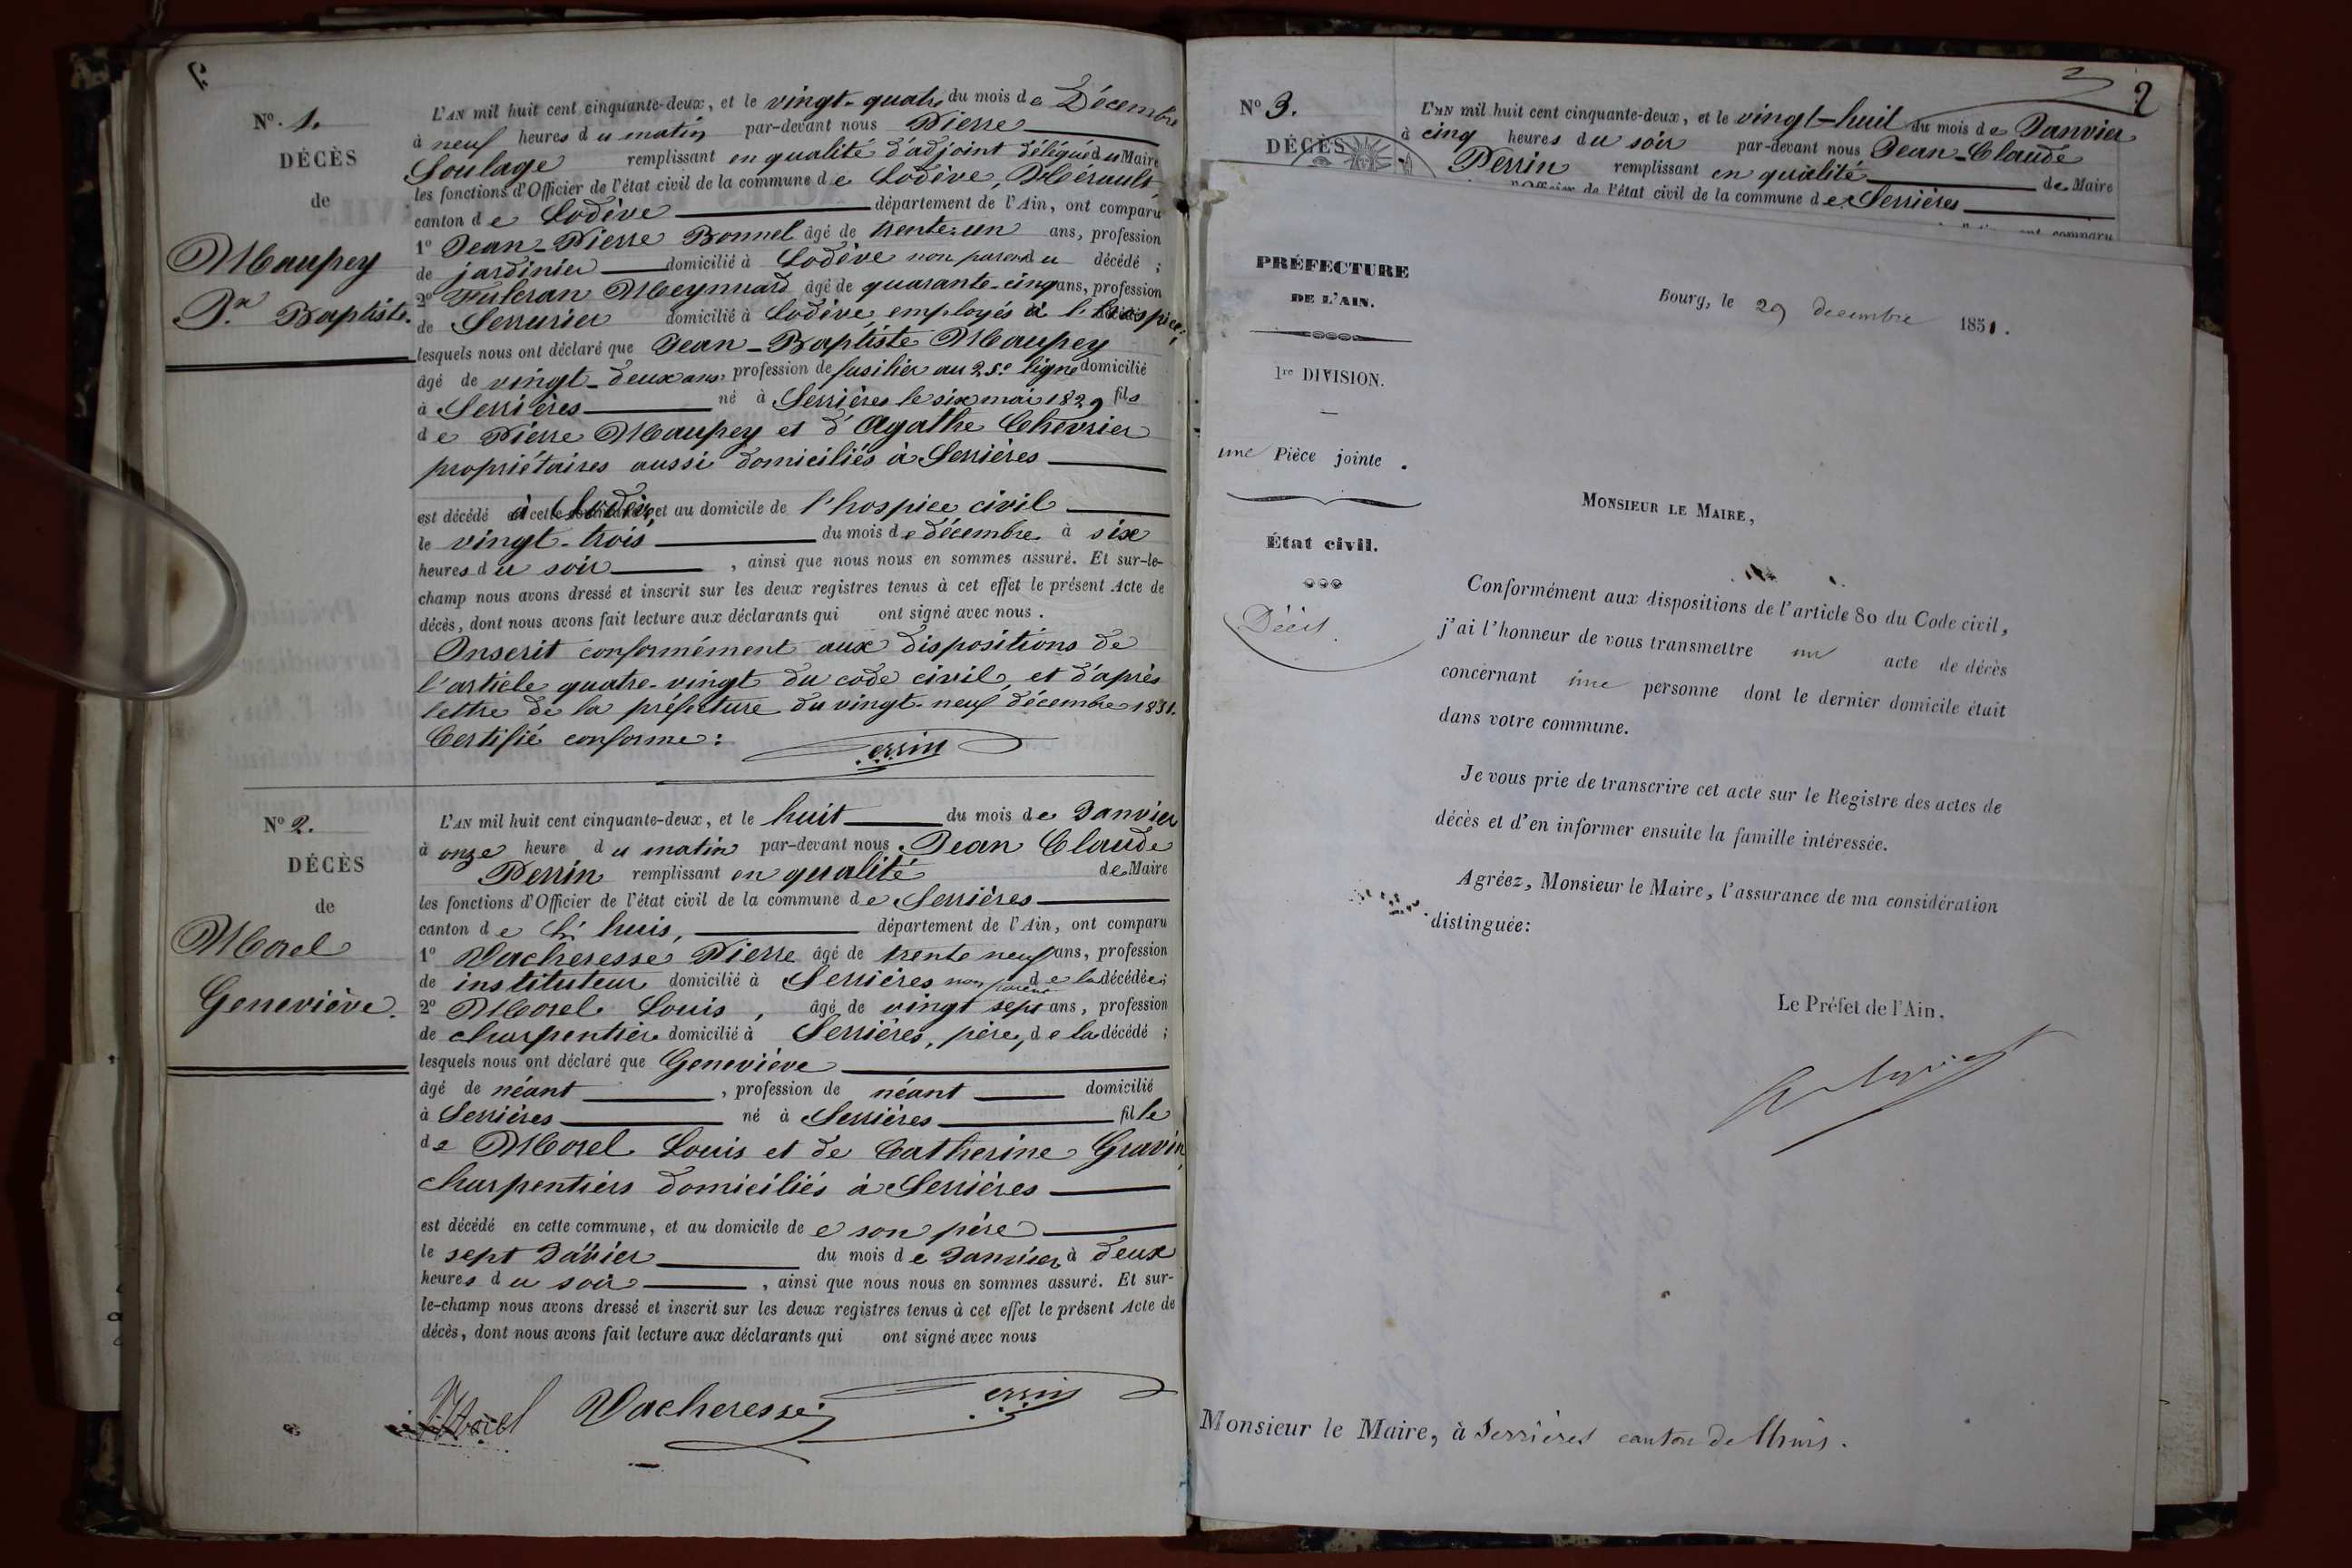 Nº. 1.
DÉCÈS
de
Maupey
Jn Baptiste.
L'AN mil huit cent cinquante-deux, et le vingt-quatre du mois de Décembre
à neuf heures du matin par-devant nous Pierre
Soulage remplissant en qualité d'adjoint délégué du Maire
les fonctions d'Officier de l'état civil de la commune de Lodève, Hérault
canton de Lodève département de l'Ain, ont comparu
1º Jean-Pierre Bonnel âgé de trente-un ans, profession
de jardinier domicilié à Lodève non parent du décédé ;
2º Fulcran Meynnard âgé de quarante-cinq ans, profession
de Serrurier domicilié à Lodève, employés à l'hospice;
lesquels nous ont déclaré que Jean-Baptiste Maupey
âgé de vingt-deux ans, profession de fusilier au 25e ligne domicilié
à Serrières né à Serrières le six mai 1829 fils
de Pierre Maupey et d'Agathe Chevrier
propriétaires aussi domiciliés à Serrières
est décédé à Lodève, et au domicile de l'hospice civil
le vingt-trois du mois de décembre à six
heures du soir , ainsi que nous nous en sommes assuré. Et sur-le-
champ nous avons dressé et inscrit sur les deux registres tenus à cet effet le présent Acte de
décès, dont nous avons fait lecture aux déclarants qui ont signé avec nous.
Inscrit conformément aux dispositions de
l'article quatre-vingt du code civil, et d'après
lettre de la préfecture du vingt-neuf décembre 1851.
Certifié conforme :
Perrin
Nº 2.
DÉCÈS
de
Morel
Geneviève.
L'AN mil huit cent cinquante-deux, et le huit du mois de Janvier
à onze heure du matin par-devant nous Jean Claude
Perrin remplissant en qualité de Maire
les fonctions d'Officier de l'état civil de la commune de Serrières
canton de Lhuis, département de l'Ain, ont comparu
1º Vacheresse Pierre âgé de trente neuf ans, profession
de instituteur domicilié à Serrières non parent de la décédée;
2º Morel Louis, âgé de vingt sept ans, profession
de charpentier domicilié à Serrières, père, de la décédé ;
lesquels nous ont déclaré que Geneviève
âgé de néant , profession de néant domicilié
à Serrières né à Serrières fille
de Morel Louis et de Catherine Gravin,
charpentiers domiciliés à Serrières
est décédé en cette commune, et au domicile de e son père
le sept Janvier du mois de Janvier à deux
heures du soir , ainsi que nous nous en sommes assuré. Et sur-
le-champ nous avons dressé et inscrit sur les deux registres tenus à cet effet le présent Acte de
décès, dont nous avons fait lecture aux déclarants qui ont signé avec nous
Morel Vacheresse Perrin
2
Nº 3.
DÉCÈS
L'AN mil huit cent cinquante-deux, et le vingt-huit du mois de Janvier
à cinq heures du soir par-devant nous Jean-Claude
Perrin remplissant en qualité de Maire
l'Officier de l'état civil de la commune de Serrières
ont comparu
PRÉFECTURE
DE L'AIN.
1re DIVISION.
une Pièce jointe.
État civil.
Décès.
Bourg, le 29 decembre 1851.
MONSIEUR LE MAIRE,
Conformément aux dispositions de l'article 80 du Code civil,
j'ai l'honneur de vous transmettre un acte de décès
concernant une personne dont le dernier domicile était
dans votre commune.
Je vous prie de transcrire cet acte sur le Registre des actes de
décès et d'en informer ensuite la famille intéressée.
Agréez, Monsieur le Maire, l'assurance de ma considération
distinguée:
Le Préfet de l'Ain.
Monsieur le Maire, à Serrières canton de Lhuis.